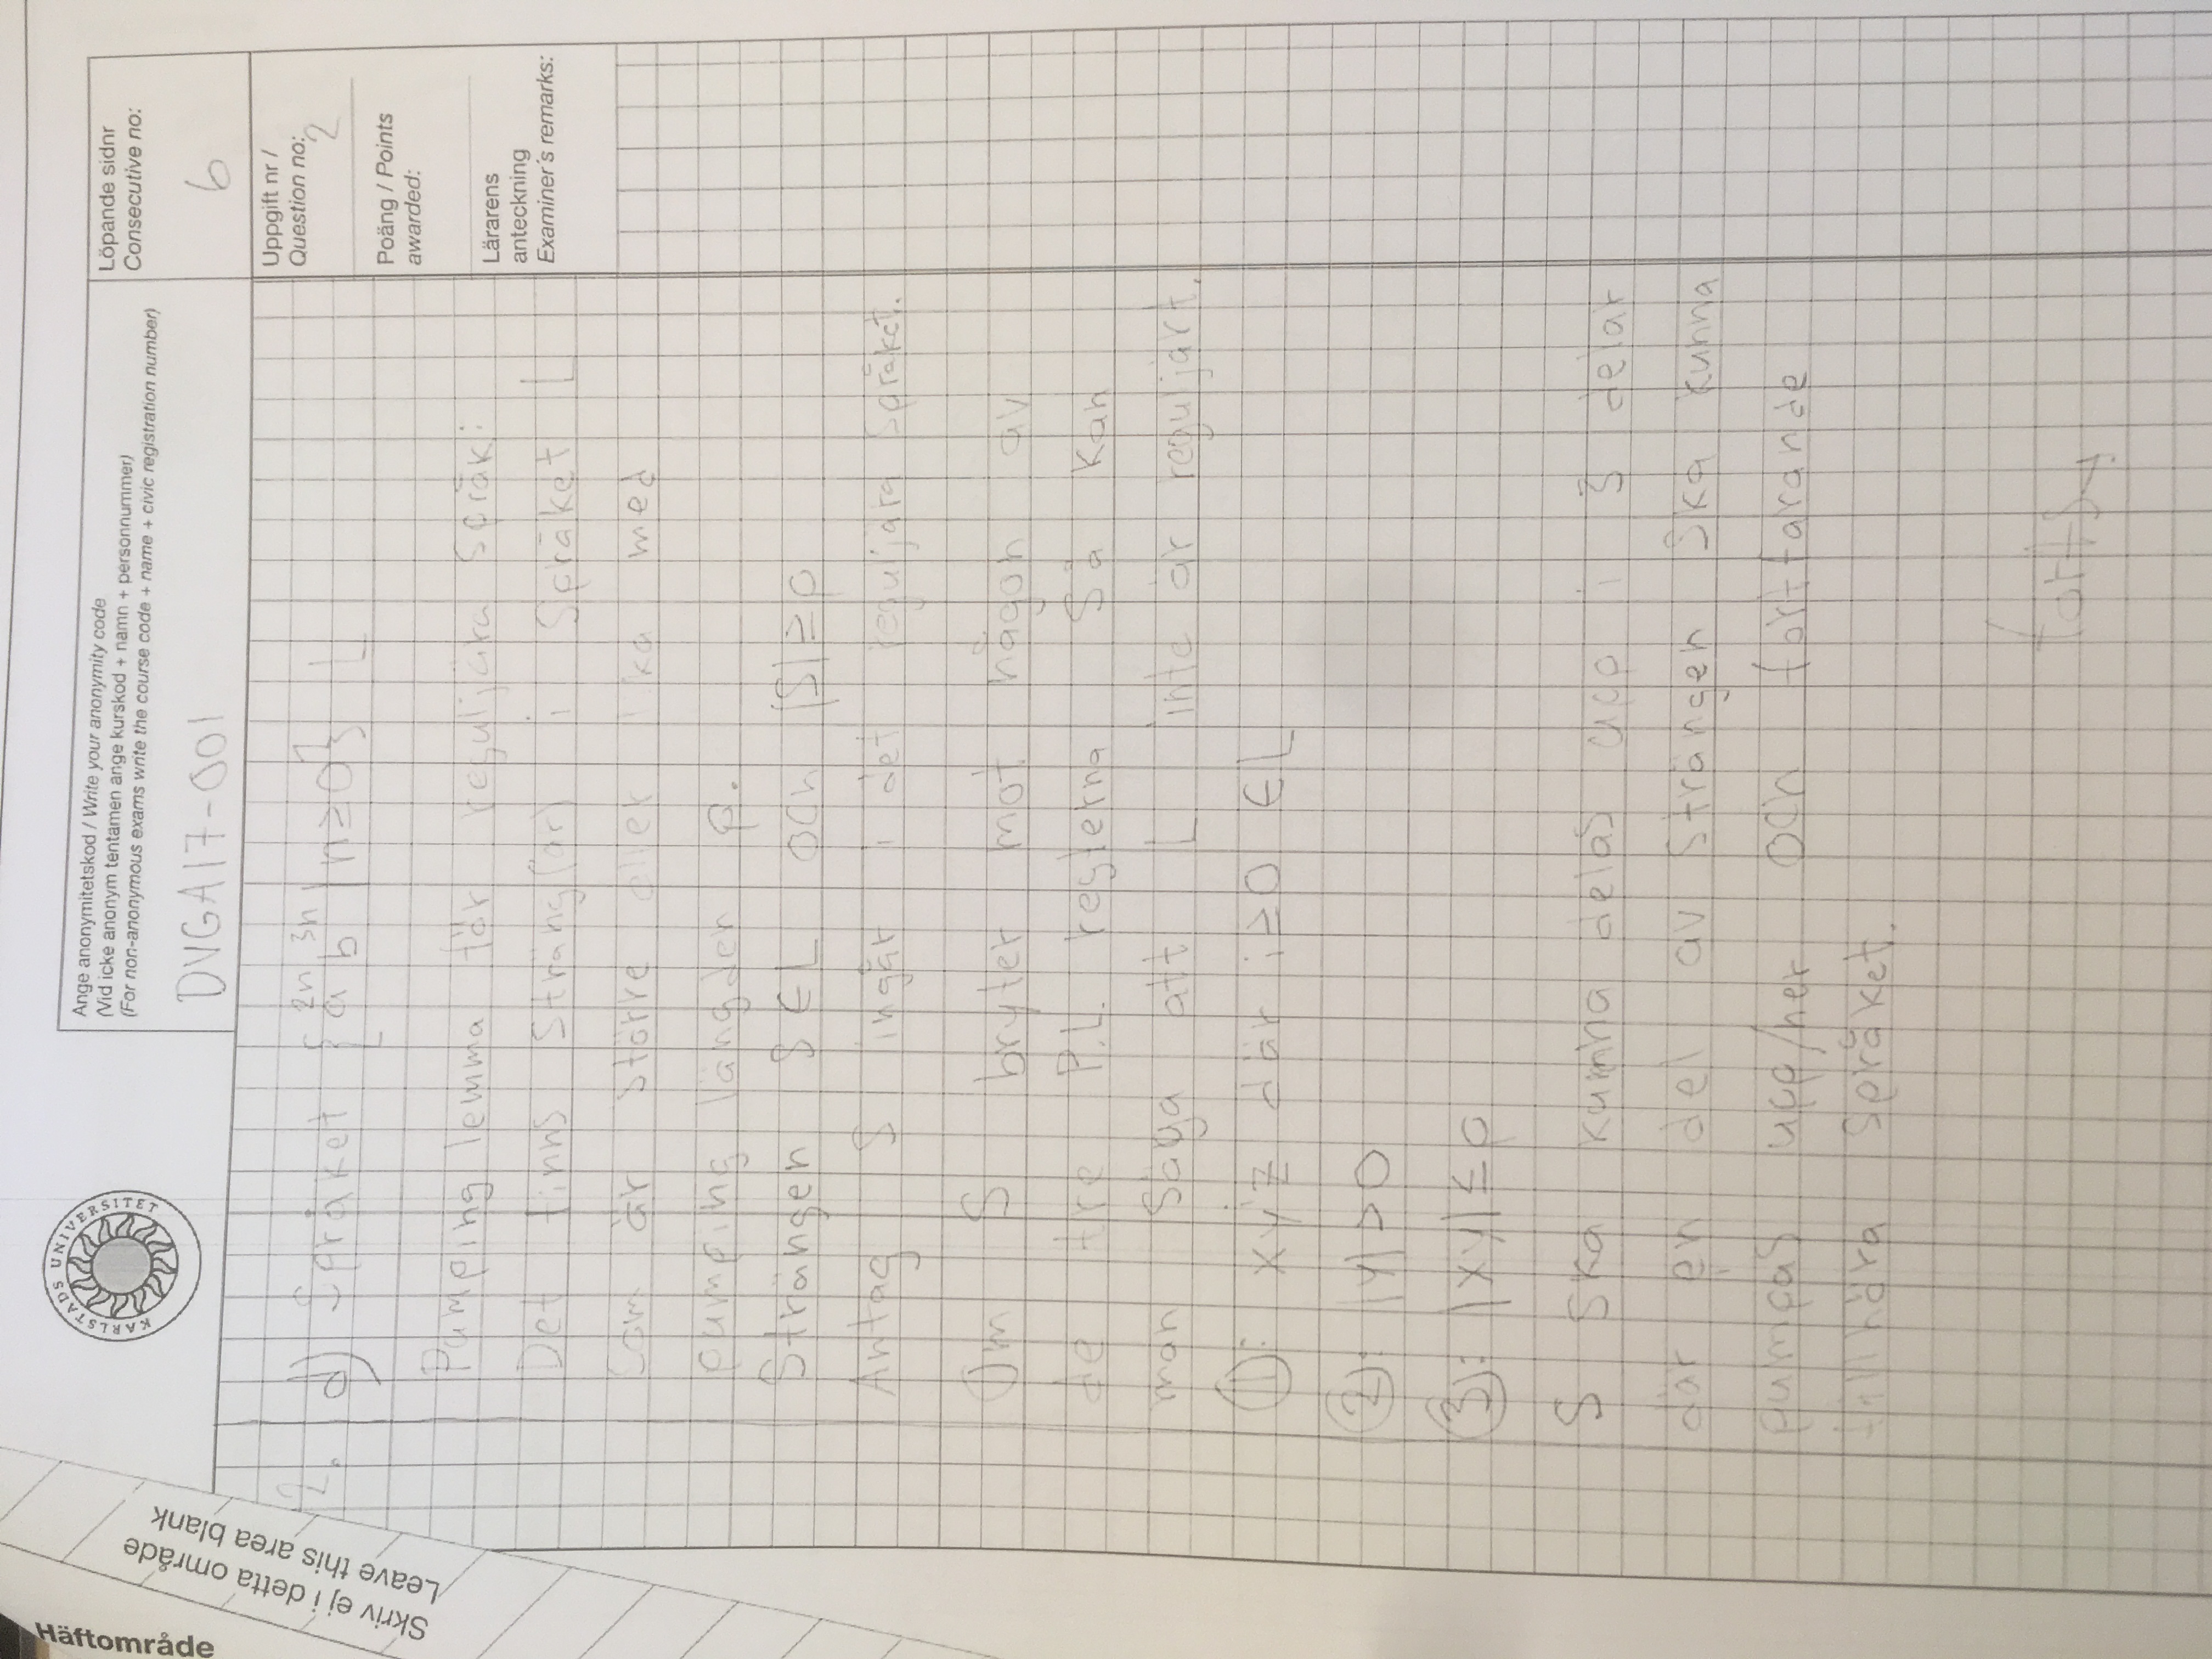 Häftområde
Skriv ej i detta område
Leave this area blank
KARLSTADS UNIVERSITET
Ange anonymitetskod / Write your anonymity code
(Vid icke anonym tentamen ange kurskod + namn + personnummer)
(For non-anonymous exams write the course code + name + civic registration number)
DVGA17-001
Löpande sidnr
Consecutive no:
6
Uppgift nr /
Question no:
2
Poäng / Points
awarded:
Lärarens
anteckning
Examiner´s remarks:
2. d) Språket {a^2n b^3n | n≥0} L
Pumping lemma för reguljära språk:
Det finns sträng(ar) i språket L
Som är större eller lika med
pumping längden p.
Strängen S ∈ L och |S| ≥ p
Antag S ingår i det reguljära språket.
Om S bryter mot någon av
de tre P.L. reglerna så kan
man säga att L inte är reguljärt.
①: xy^i z där i≥0 ∈ L
②: |y| > 0
③: |xy| ≤ p
S ska kunna delas upp i 3 delar
där en del av strängen ska kunna
pumpas upp/ner och fortfarande
tillhöra språket.
forts→